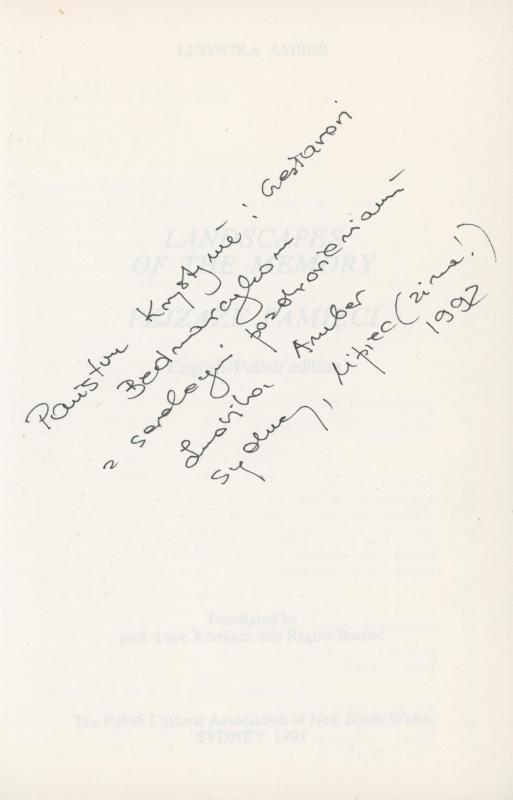 LUDWIKA AMBER
Państwu Krystynie i Czesławowi
Bednarczykom
z pozdrowieniami
Ludwika Amber
Sydney, lipiec (zima!)
1992
LANDSCAPES
OF THE MEMORY
PEJZAŻE PAMIĘCI
English-Polish edition
Translated by
prof. Leon and Regina
The Polish Cultural Association of New South Wales
SYDNEY 1991